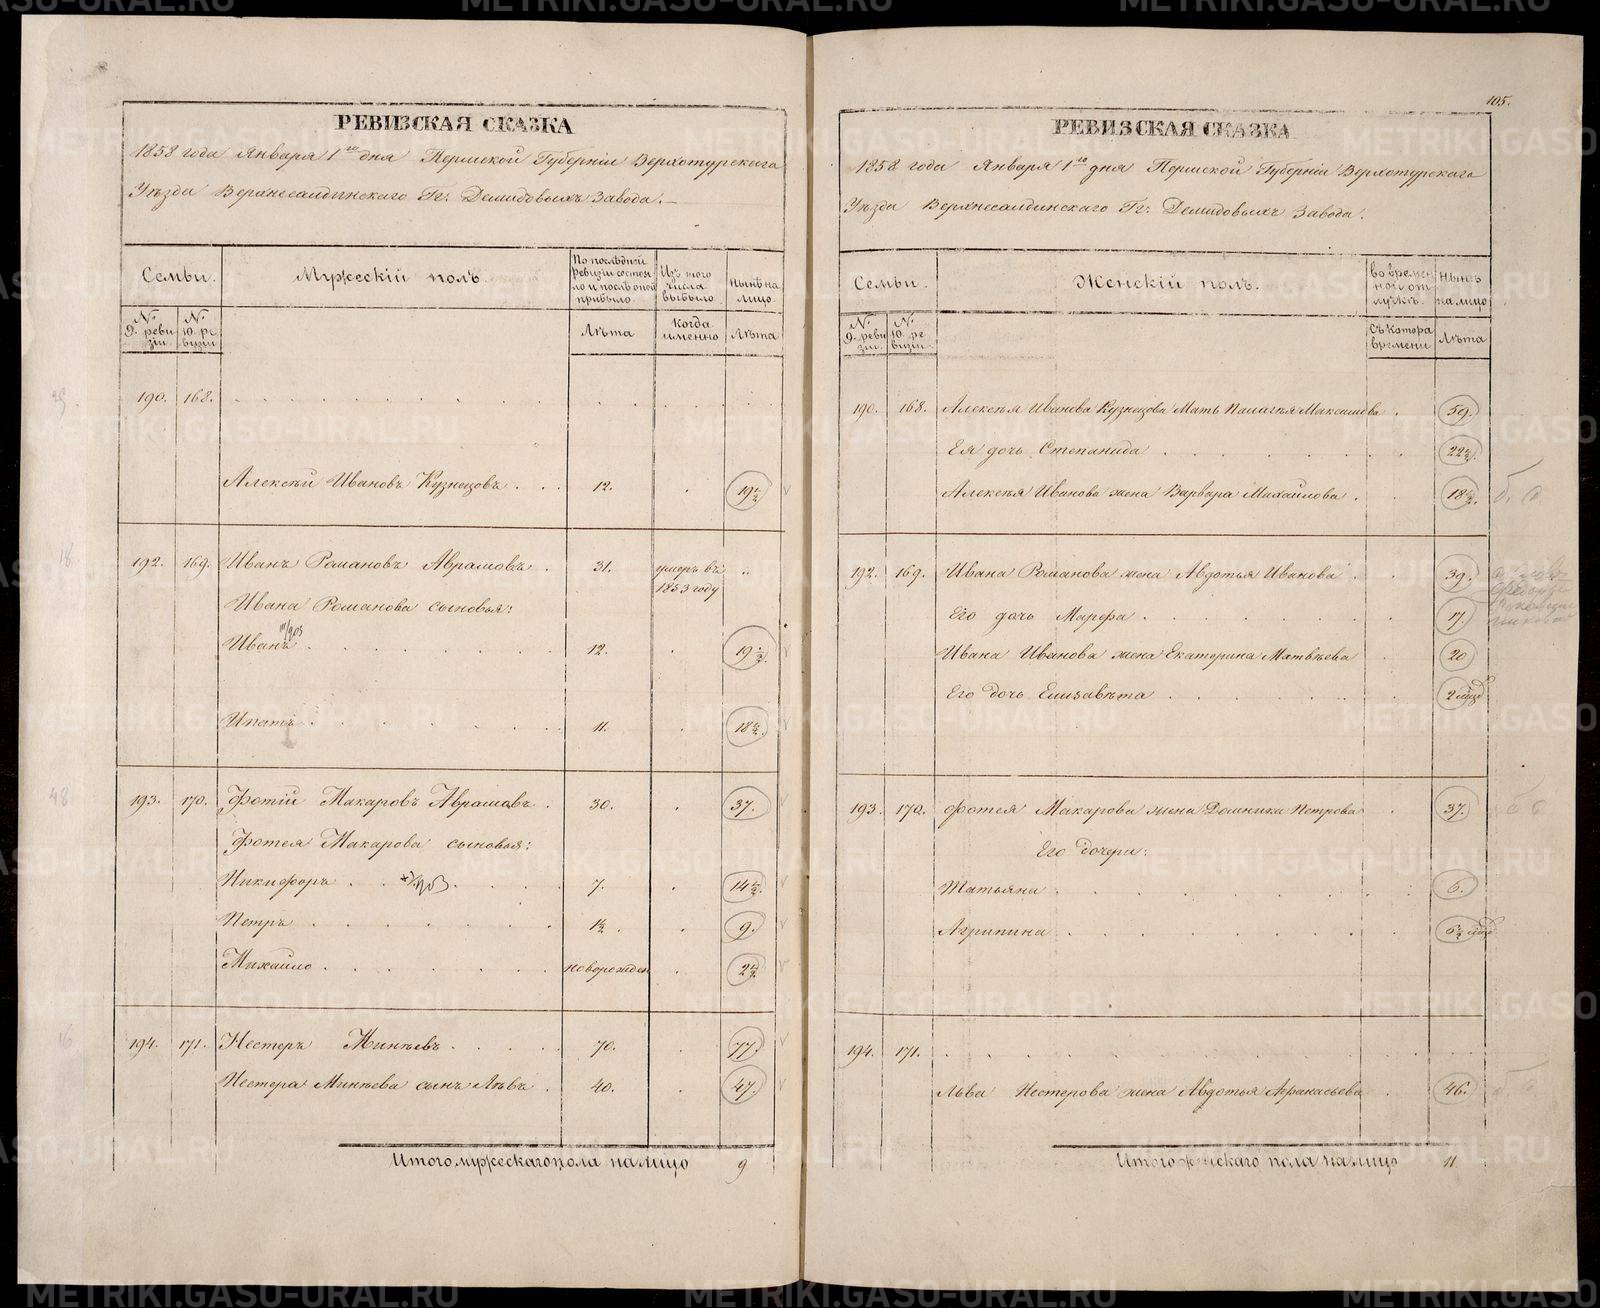 РЕВИЗСКАЯ СКАЗКА
1858 года Января 1го дня Пермской Губерніи Верхотурскаго
Уѣзда Верхнесалдинскаго Гг: Демидовыхъ Завода.
Семьи.
Мужескій полъ
По послѣдней ревизіи состояло и послѣ оной прибыло.
Изъ того числа выбыло.
Нынѣ на лицо.
№ 9. ревизіи
№ 10. ревизіи
Лѣта
Когда именно
Лѣта
190. 168.
Алексѣй Ивановъ Кузнецовъ . . . 12. . 19½
192. 169. Иванъ Романовъ Аврамовъ . 31. умеръ въ 1853 году "
Ивана Романова сыновья:
Иванъ . 12. . 19½.
Ипатъ . 11. . 18½.
193. 170. Фотій Макаровъ Аврамовъ . 30. . 37.
Фотея Макарова сыновья:
Никифоръ . 7. . 14½.
Петръ . 1½. . 9.
Михайло . новорожден . 2½.
194. 171. Нестеръ Минѣевъ . 70. . 77.
Нестера Минѣева сынъ Левъ . 40. . 47.
Итого мужескаго пола на лицо 9
105.
РЕВИЗСКАЯ СКАЗКА
1858 года Января 1го дня Пермской Губерніи Верхотурскаго
Уѣзда Верхнесалдинскаго Гг: Демидовыхъ Завода.
Семьи.
Женскій полъ.
Во временной отлучкѣ.
Нынѣ на лицо
№ 9. ревизіи
№ 10. ревизіи
Съ котора времени
Лѣта
190. 168. Алексѣя Иванова Кузнецова Мать Палагѣя Максимова . 59.
Ея дочь Степанида . 22½.
Алексѣя Иванова жена Варвара Михайлова . 18½.
192. 169. Ивана Романова жена Авдотья Иванова . 39.
Его дочь Марфа . 17.
Ивана Иванова жена Екатерина Матвѣева . 20
Его дочь Елизавѣта . 2 мѣсяц
193. 170. Фотея Макарова жена Домника Петрова . 37.
Его дочери:
Татьяна . 6.
Агрипина . 6½
194. 171.
Льва Нестерова жена Авдотья Афанасьева . 46.
Итого женскаго пола на лицо 11.
METRIKI.GASO-URAL.RU